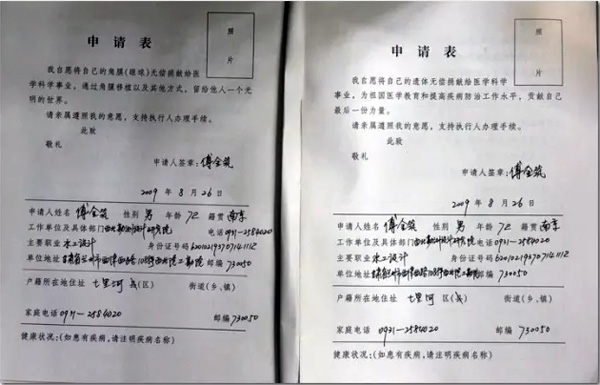 申请表
照
片
我自愿将自己的角膜(眼球)无偿捐献给医
学科学事业，通过角膜移植以及其他方式，留给他人一个光
明的世界。
请亲属遵照我的意愿，支持执行人办理手续。
此致
敬礼
申请人签章：傅全筑
2009 年 8 月 26 日
申请人姓名 傅全筑 性别 男 年龄 72 籍贯 南京
工作单位及具体部门 电话 0931-2584020
主要职业 水工设计 身份证号码
单位地址 邮编 730050
户籍所在地住址 七里河 区(县) 街道(乡、镇)
家庭电话 0931-2584020 邮编 730050
健康状况：(如患有疾病，请注明疾病名称)
申请表
照
片
我自愿将自己的遗体无偿捐献给医学科学
事业，为祖国医学教育和提高疾病防治工作水平，贡献自己
最后一份力量。
请亲属遵照我的意愿，支持执行人办理手续。
此致
敬礼
申请人签章：傅全筑
2009 年 8 月 26 日
申请人姓名 傅全筑 性别 男 年龄 72 籍贯 南京
工作单位及具体部门 电话 0931-2584020
主要职业 水工设计 身份证号码
单位地址 邮编 730050
户籍所在地住址 七里河 区(县) 街道(乡、镇)
家庭电话 0931-2584020 邮编 730050
健康状况：(如患有疾病，请注明疾病名称)